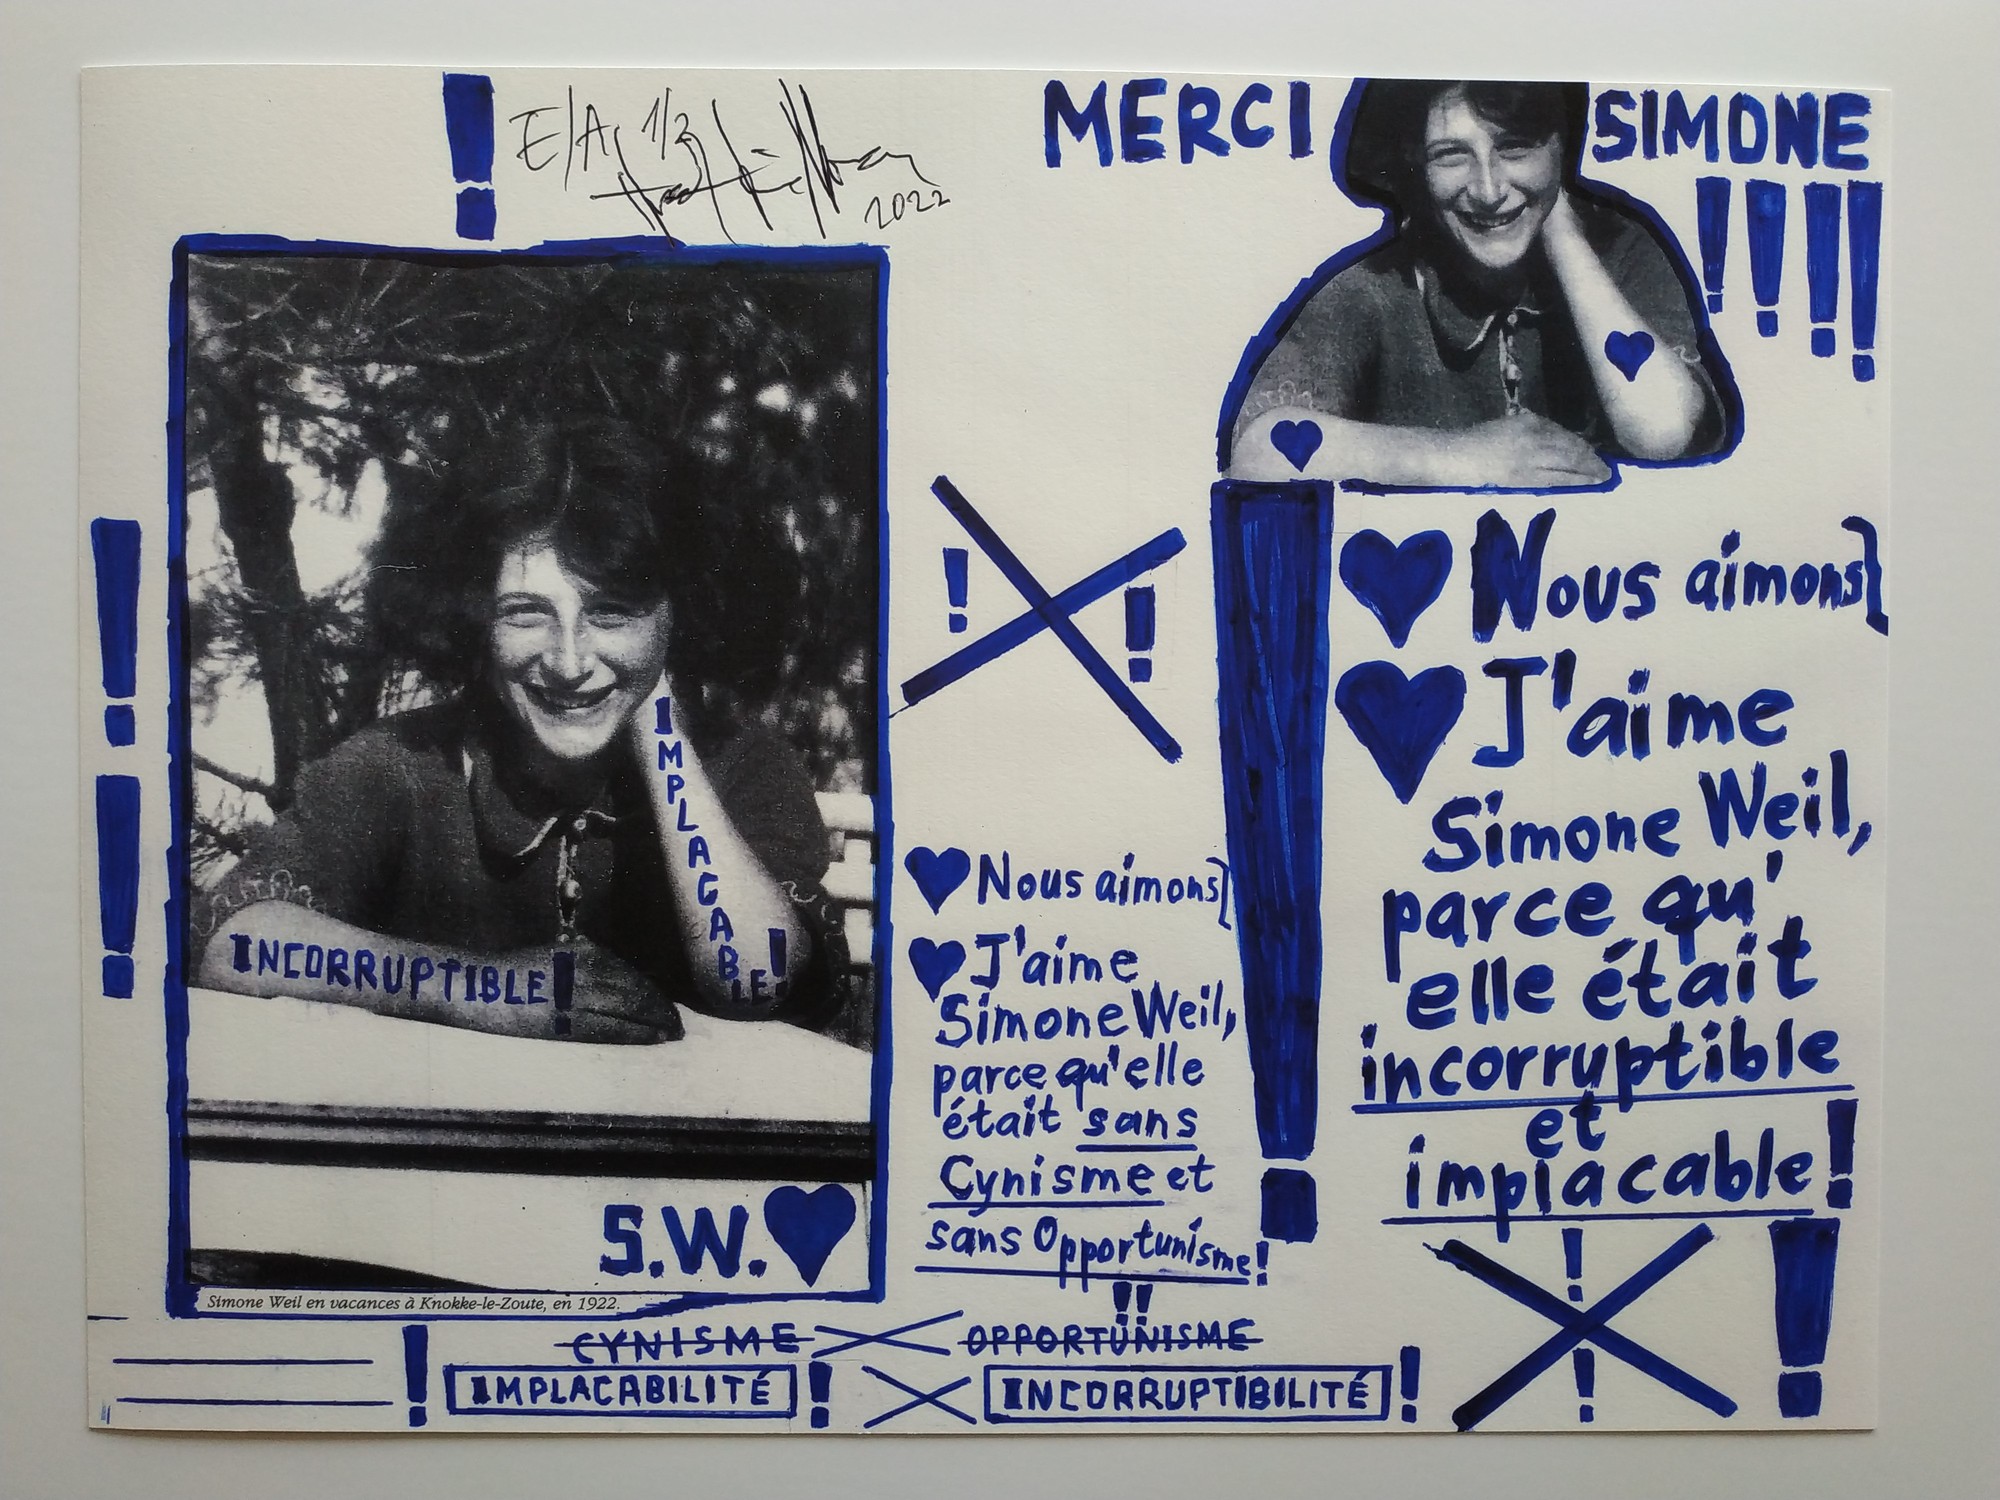 E/A 1/3
2022
MERCI SIMONE !!!!
IMPLACABLE!
INCORRUPTIBLE!
S.W.
Simone Weil en vacances à Knokke-le-Zoute, en 1922.
Nous aimons]
J'aime
Simone Weil,
parce qu'elle
était sans
Cynisme et
sans Opportunisme!
Nous aimons]
J'aime
Simone Weil,
parce qu'
elle était
incorruptible
et
implacable!
CYNISME OPPORTUNISME
! IMPLACABILITÉ ! INCORRUPTIBILITÉ !